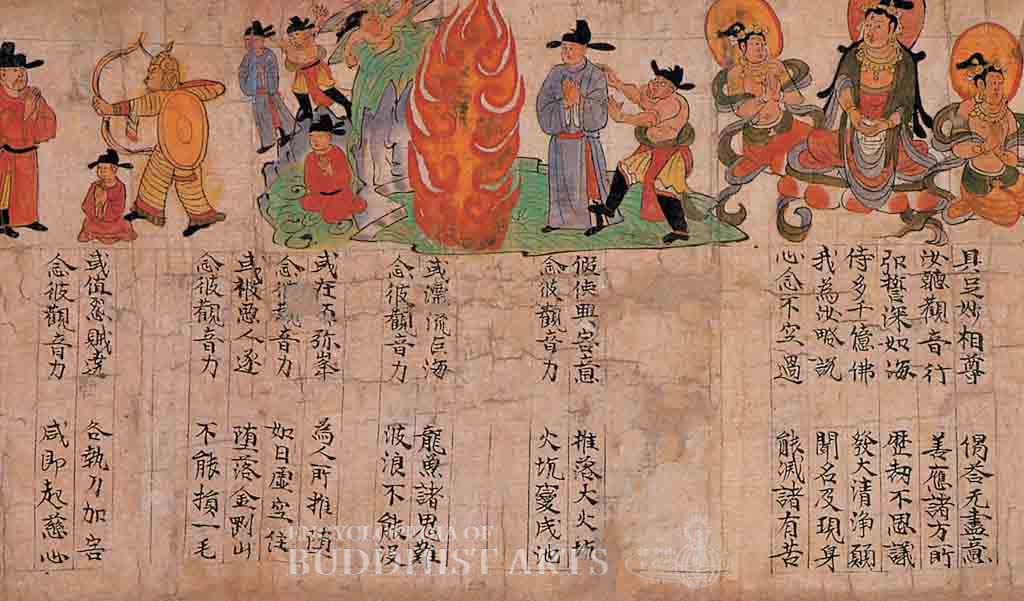 具足妙相尊 偈荅无盡意
汝聽觀音行 善應諸方所
弘誓深如海 歷劫不思議
侍多千億佛 發大清淨願
我為汝略說 聞名及現身
心念不空過 能滅諸有苦
假使興害意 推落大火坑
念彼觀音力 火坑變成池
或漂流巨海 龍魚諸鬼難
念彼觀音力 波浪不能没
或在須弥峯 為人所推墮
念彼觀音力 如日虛空住
或被惡人逐 墮落金剛山
念彼觀音力 不能損一毛
或值惡賊遶 各執刀加害
念彼觀音力 咸即起慈心
ENCYCLOPEDIA OF
BUDDHIST ARTS